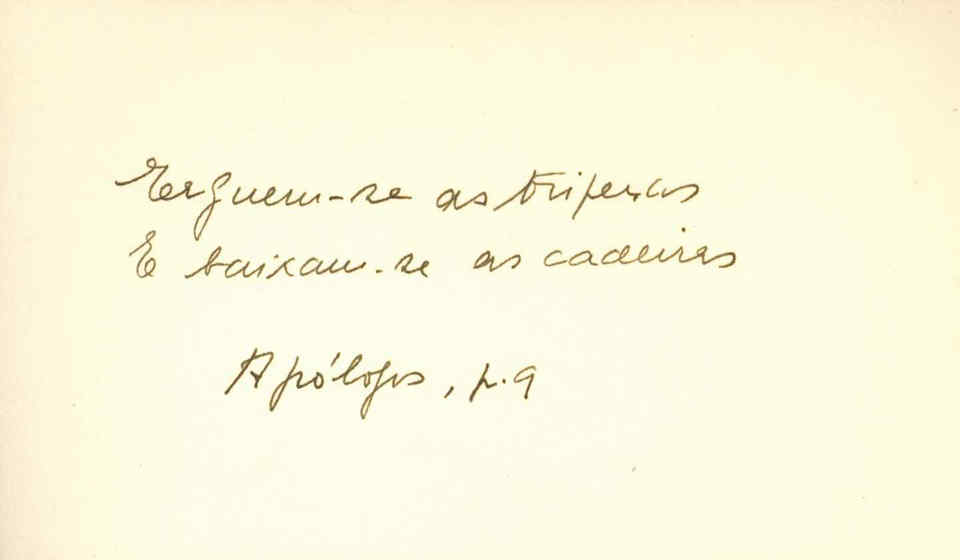 Erguem-se as tripeças
E baixam-se as cadeiras
Apólogos, p. 9